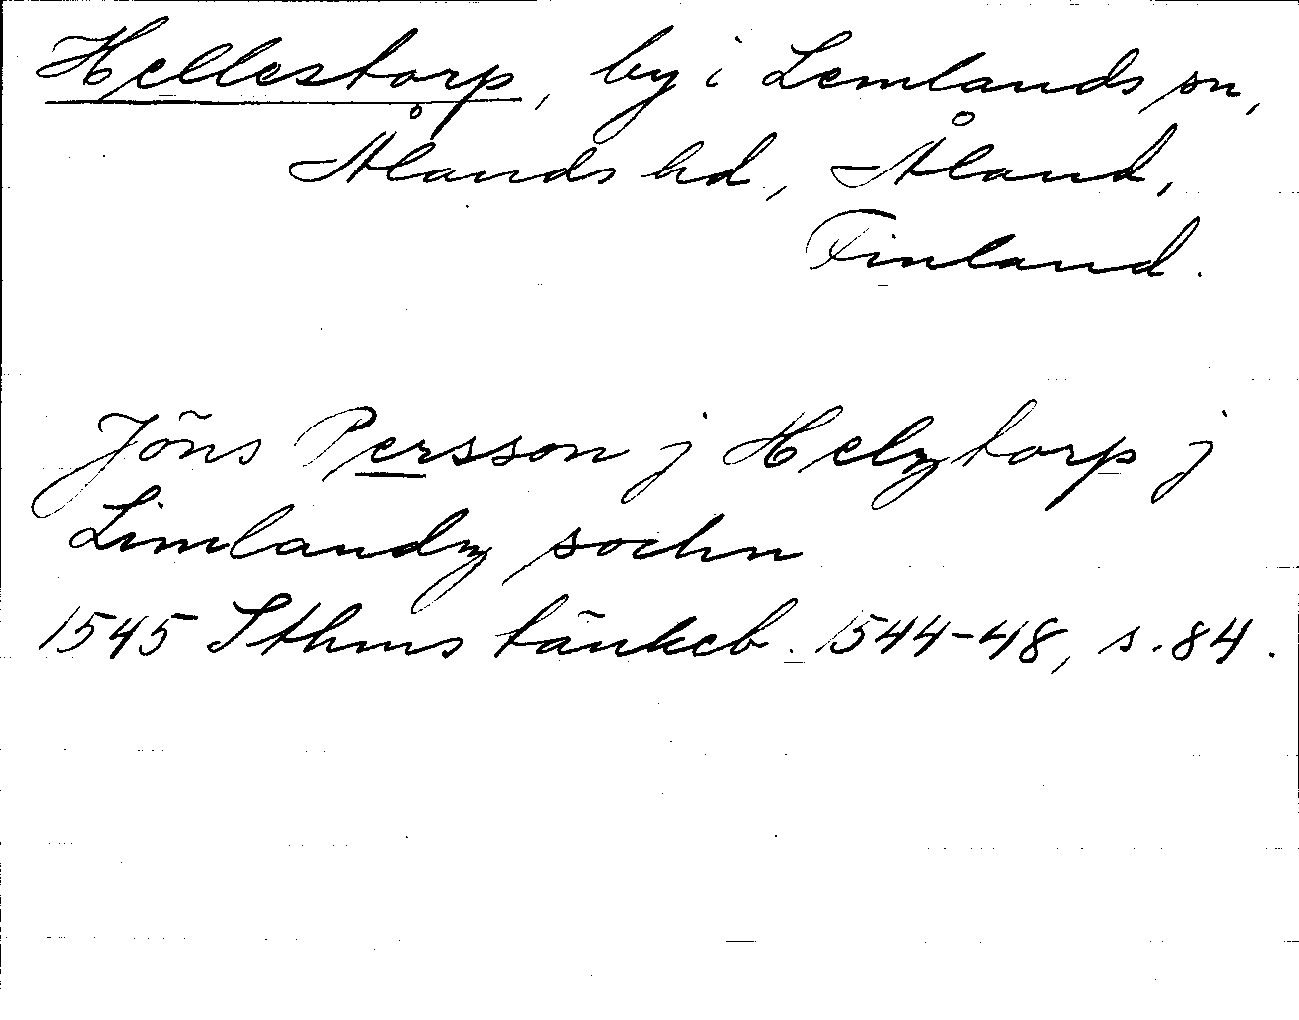 Hellestorp, by i Lemlands sn,
Ålands hd, Åland,
Finland.
Jöns Persson j Helztorp j
Limlandz sochn
1545 Sthms tänkeb. 1544-48, s. 84.